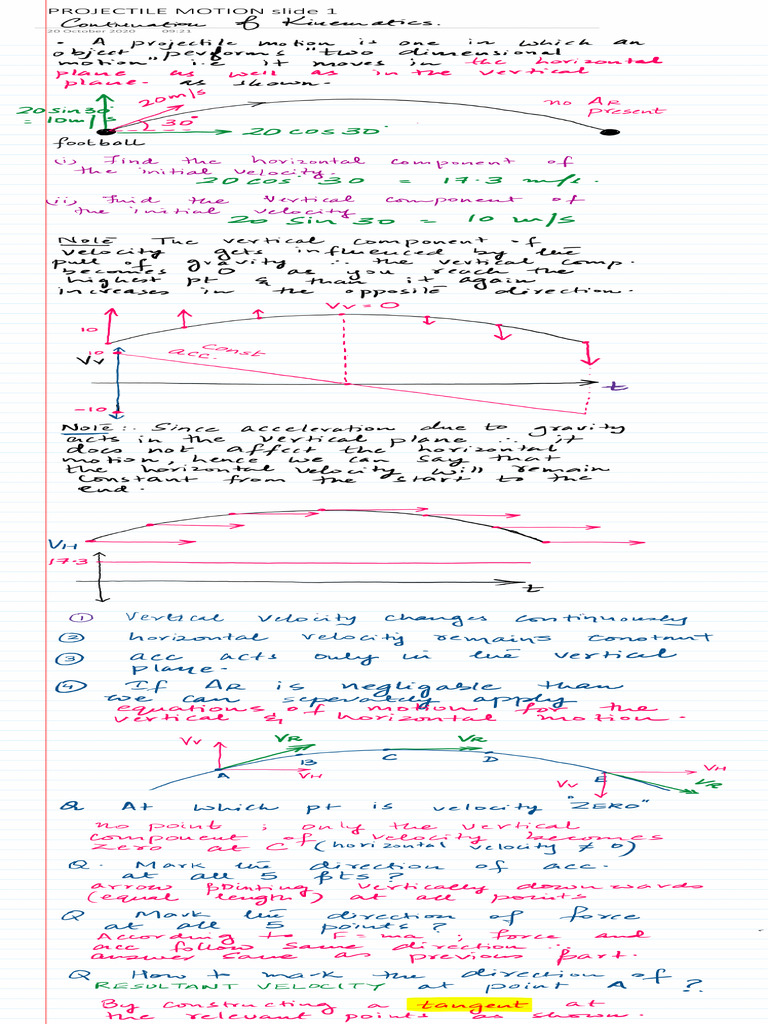 PROJECTILE MOTION slide 1
Continuation of Kinematics.
20 October 2020 09:21
• A projectile motion is one in which an
object performs "two dimensional
motion" i.e it moves in the horizontal
plane as well as in the vertical
plane. as shown.
20 sin 30
= 10 m/s
20 m/s
30°
20 cos 30°
no AR
present
football
(i) Find the horizontal component of
the initial velocity.
20 cos 30 = 17.3 m/s.
(ii) Find the vertical component of
the initial velocity
20 sin 30 = 10 m/s
Note The vertical component of
velocity gets influenced by the
pull of gravity ∴ the vertical comp.
becomes 0 as you reach the
highest pt & than it again
increases in the opposite direction.
Vv = 0
10
Vv
10
acc. const
t
-10
Note:. Since acceleration due to gravity
acts in the vertical plane ∴ it
does not affect the horizontal
motion, hence we can say that
the horizontal velocity will remain
constant from the start to the
end.
VH
17.3
t
① Vertical velocity changes continuously
② horizontal velocity remains constant
③ acc acts only in the vertical
plane.
④ If AR is negligable than
we can seperately apply
equations of motion for the
vertical & horizontal motion.
Vv VR VR
A B C D E
VH VH
Vv VR
Q At which pt is velocity "ZERO"
no point ; only the vertical
component of velocity becomes
zero at C (horizontal velocity ≠ 0)
Q. Mark the direction of acc.
at all 5 pts ?
arrow pointing vertically downwards
(equal length) at all points
Q Mark the direction of force
at all 5 points ?
According to F = ma ; force and
acc follow same direction ∴
answer same as previous part.
Q How to mark the direction of
RESULTANT VELOCITY at point A ?
By constructing a tangent at
the relevant points as shown.